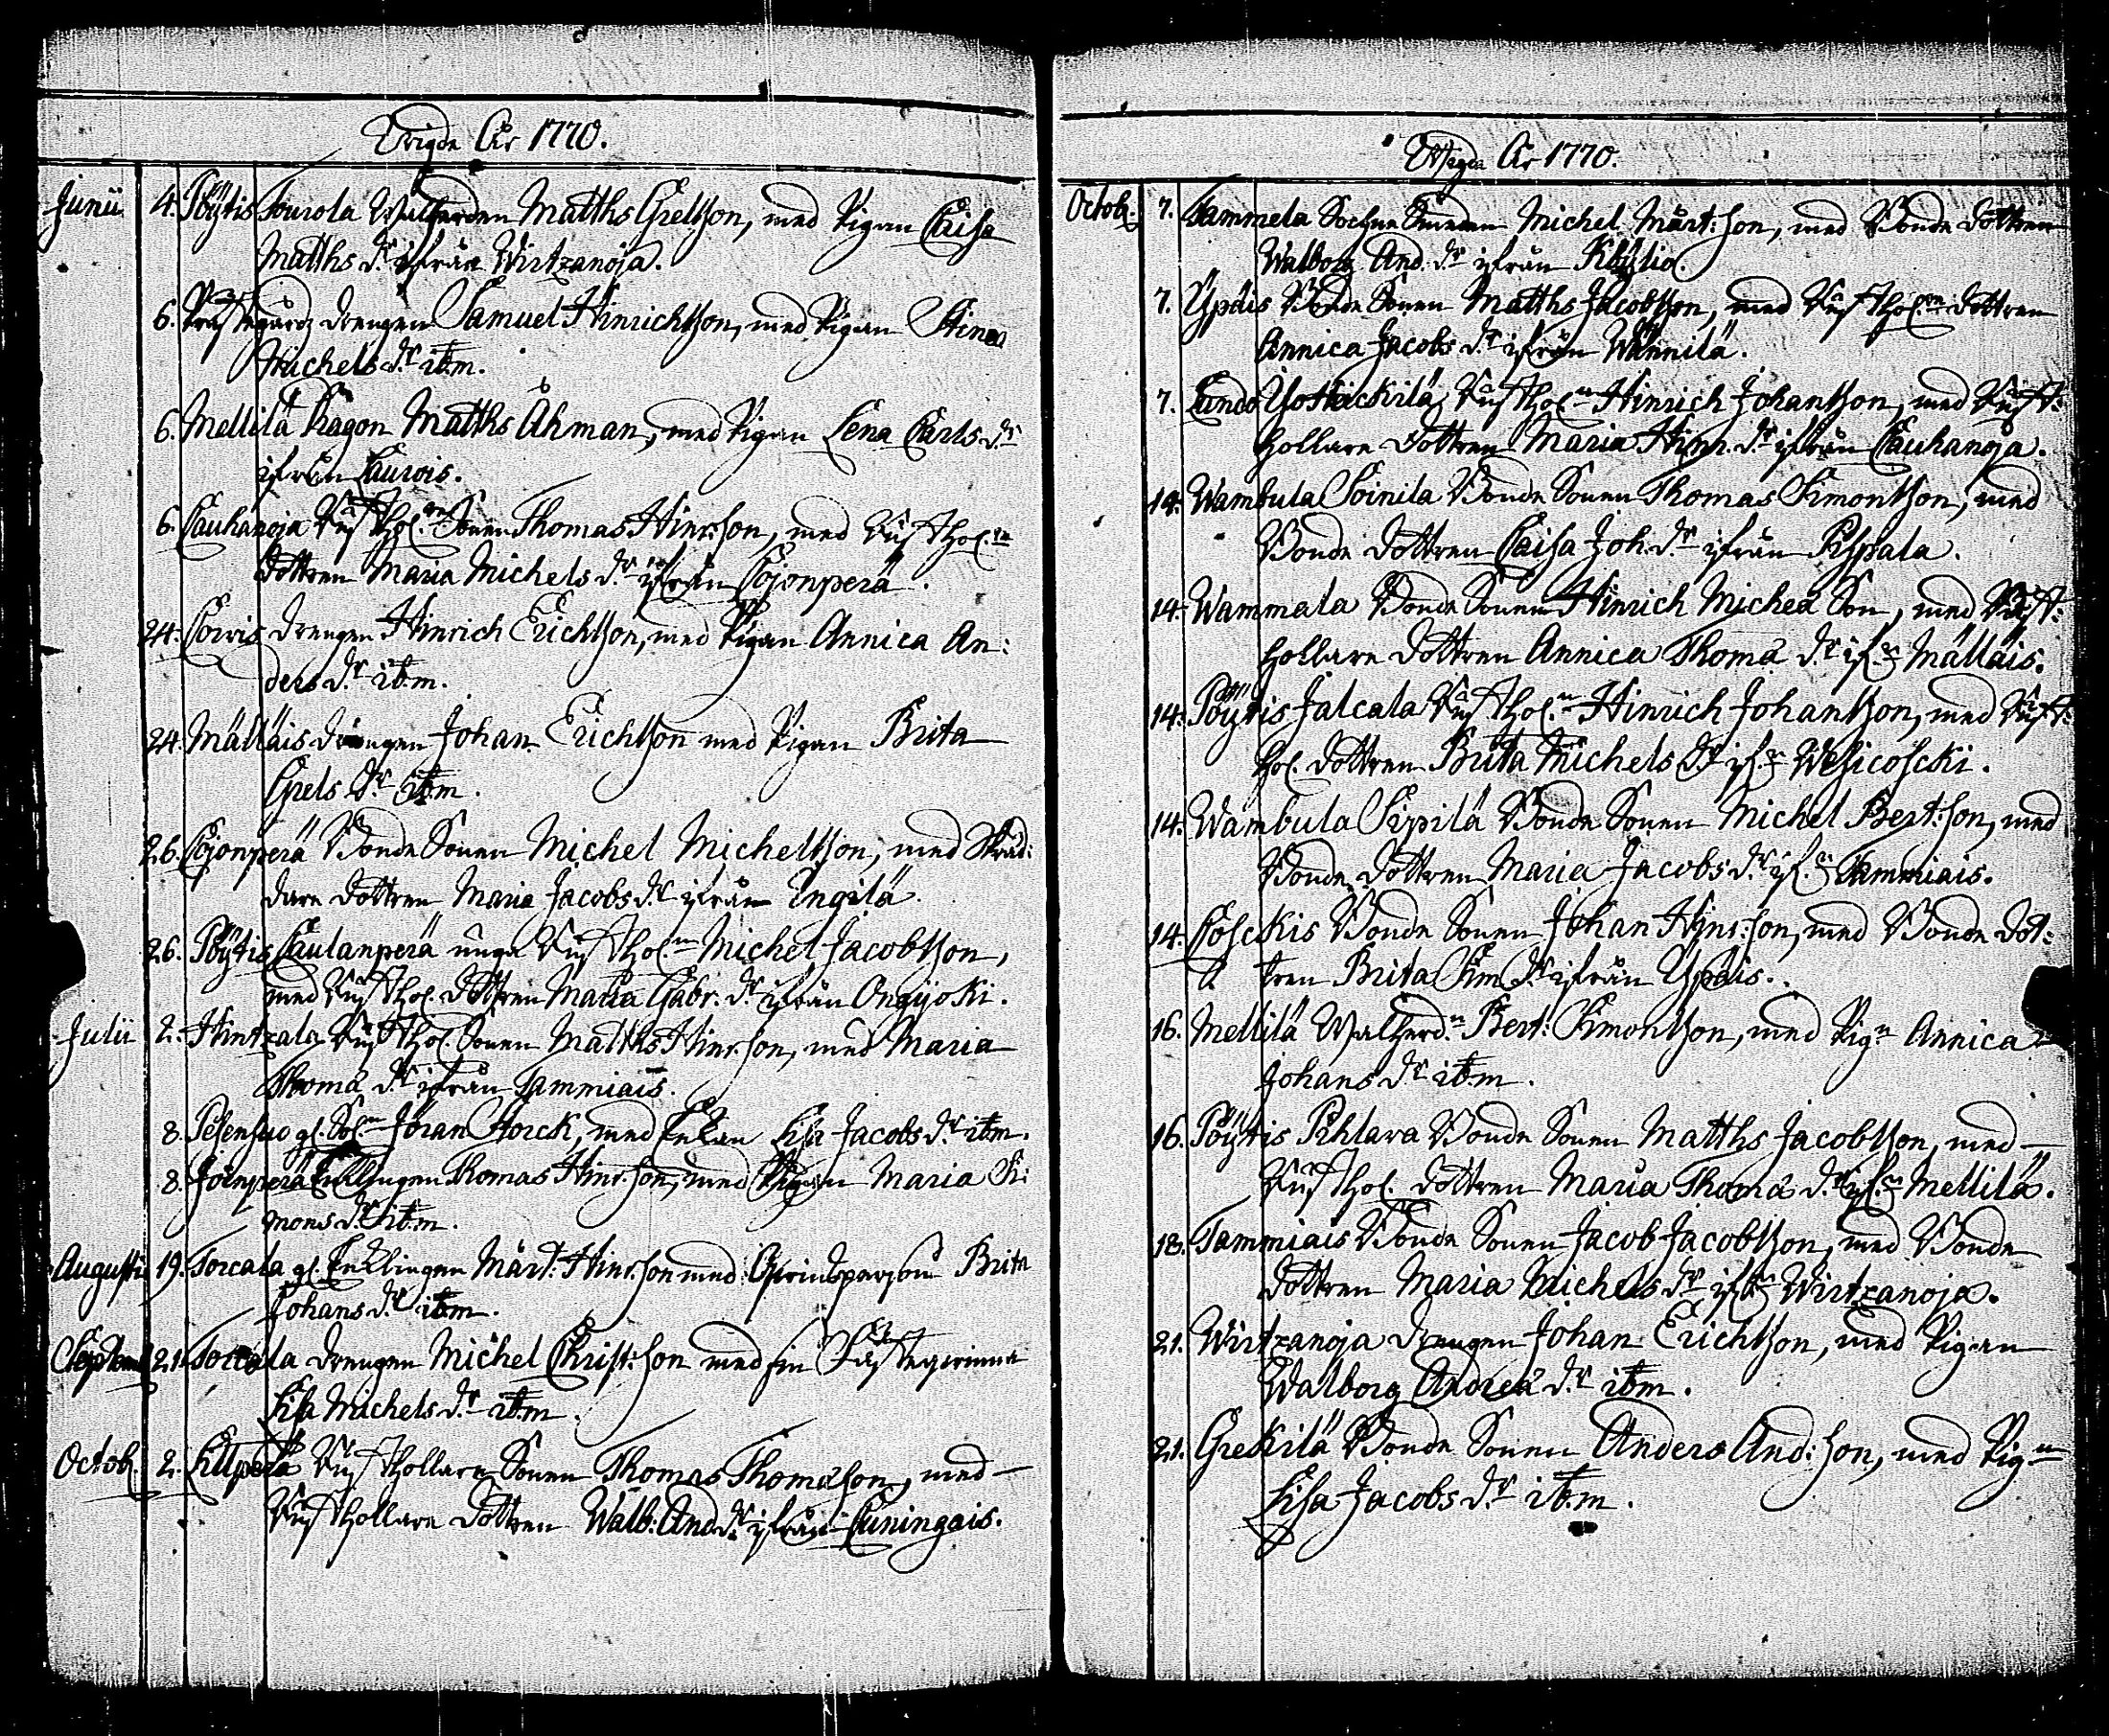 Vigde År 1770.
Junii 4. Pöytis Tourola Walfarden Matths Grelsson, med Pigan Caisa
Matths d.r ifrån Wirtzanoja.
6. Prästegårdz drengen Samuel Hinrichsson, med Pigan Stina
Michels d.r ibm.
6. Mellilä Dragon Matths Åhman, med Pigan Lena Carls d.r
ifrån Laurois.
6. Cauhanoja Rusthol.re Sonen Thomas Hinr:son, med Rusthol.re
dottren Maria Michels d.r ifrån Cojonperä.
24. Corvis drengen Hinrich Erichsson, med Pigan Annica An:
ders d.r ibm.
24. Mälläis drengen Johan Erichsson med Pigan Brita
Grels d.r ibm.
26. Cojonperä Bonde Sonen Michel Michelsson, med Skräd:
dare dottren Maria Jacobs d.r ifrån Engilä.
26. Pöytis Caulanperä unga Rusthol.n Michel Jacobsson,
med Rusthol. dottren Maria Gabr. d.r ifrån Ongijoki.
Julii 2. Hintzala Rusthol. Sonen Matths Hinr.son, med Maria
Thomæ d.r ifrån Tammiais.
8. Pesensuo gl. Sol.n Jöran Storck, med Enkan Lisa Jacobs d.r ibm.
8. Joenperä Enklingen Thomas Hinr.son, med Pigan Maria Si:
mons d.r ibm.
Augusti 19. Torcala gl. Enklingen Mårt: Hinr.son med Qwinsperson Brita
Johans d.r ibm.
Septemb. 21. Torcala drengen Michel Christ:son med sin Fästeqwinna
Lisa Michels d.r ibm.
Octob. 2. Rusthollare Sonen Thomas Thomæson, med
Rusthollare dottren Walb: And. d.r ifrån Cuningais.
Wigda År 1770.
Octob: 7. Tammela Sochne Smeden Michel Mårt:son, med Bonde dottren
Walborg And. d.r ifrån Köyliö.
7. Ypäis Bonde Sonen Matths Jacobsson, med Rusthol.re dottren
Annica Jacobs d.r ifrån Wännilä.
7. Lundo Yo Häckilä Rusthol.n Hinrich Johansson, med Rust:
hollare dottren Maria Hinr. d.r ifrån Cauhanoja.
14. Wambula Soinila Bonde Sonen Thomas Simonsson, med
Bonde dottren Caisa Joh. d.r ifrån Pyspala.
14. Wammala Bonde Sonen Hinrich Micheæ Son, med Rust:
hollare dottren Annica Thomæ d.r ifrn Mälläis.
14. Pöytis Jalcala Rusthol.n Hinrich Johansson, med Rust:
hol. dottren Brita Michels d.r ifrn Wesicoscki.
14. Wambula Sipilä Bonde Sonen Michel Bert:son, med
Bonde dottren Maria Jacobs d.r ifrn Tammiais.
14. Cosckis Bonde Sonen Johan Hinr:son, med Bonde dot:
tren Brita Sim d.r ifrån Ypäis.
16. Mellilä Walferd.n Bert: Simonsson, med Pig.n Annica
Johans d.r ibm.
16. Pöytis Pihlava Bonde Sonen Matths Jacobsson, med
Rusthol. dottren Maria Thomæ d.r ifrn Mellilä.
18. Tammiais Bonde Sonen Jacob Jacobsson, med Bonde
dottren Maria Michels d.r ifrn Wirtzanoja.
21. Wirtzanoja drengen Johan Erichsson, med Pigan
Walborg Andreæ d.r ibm.
21. Grekilä Bonde Sonen Anders And:son, med Pig.n
Lisa Jacobs d.r ibm.